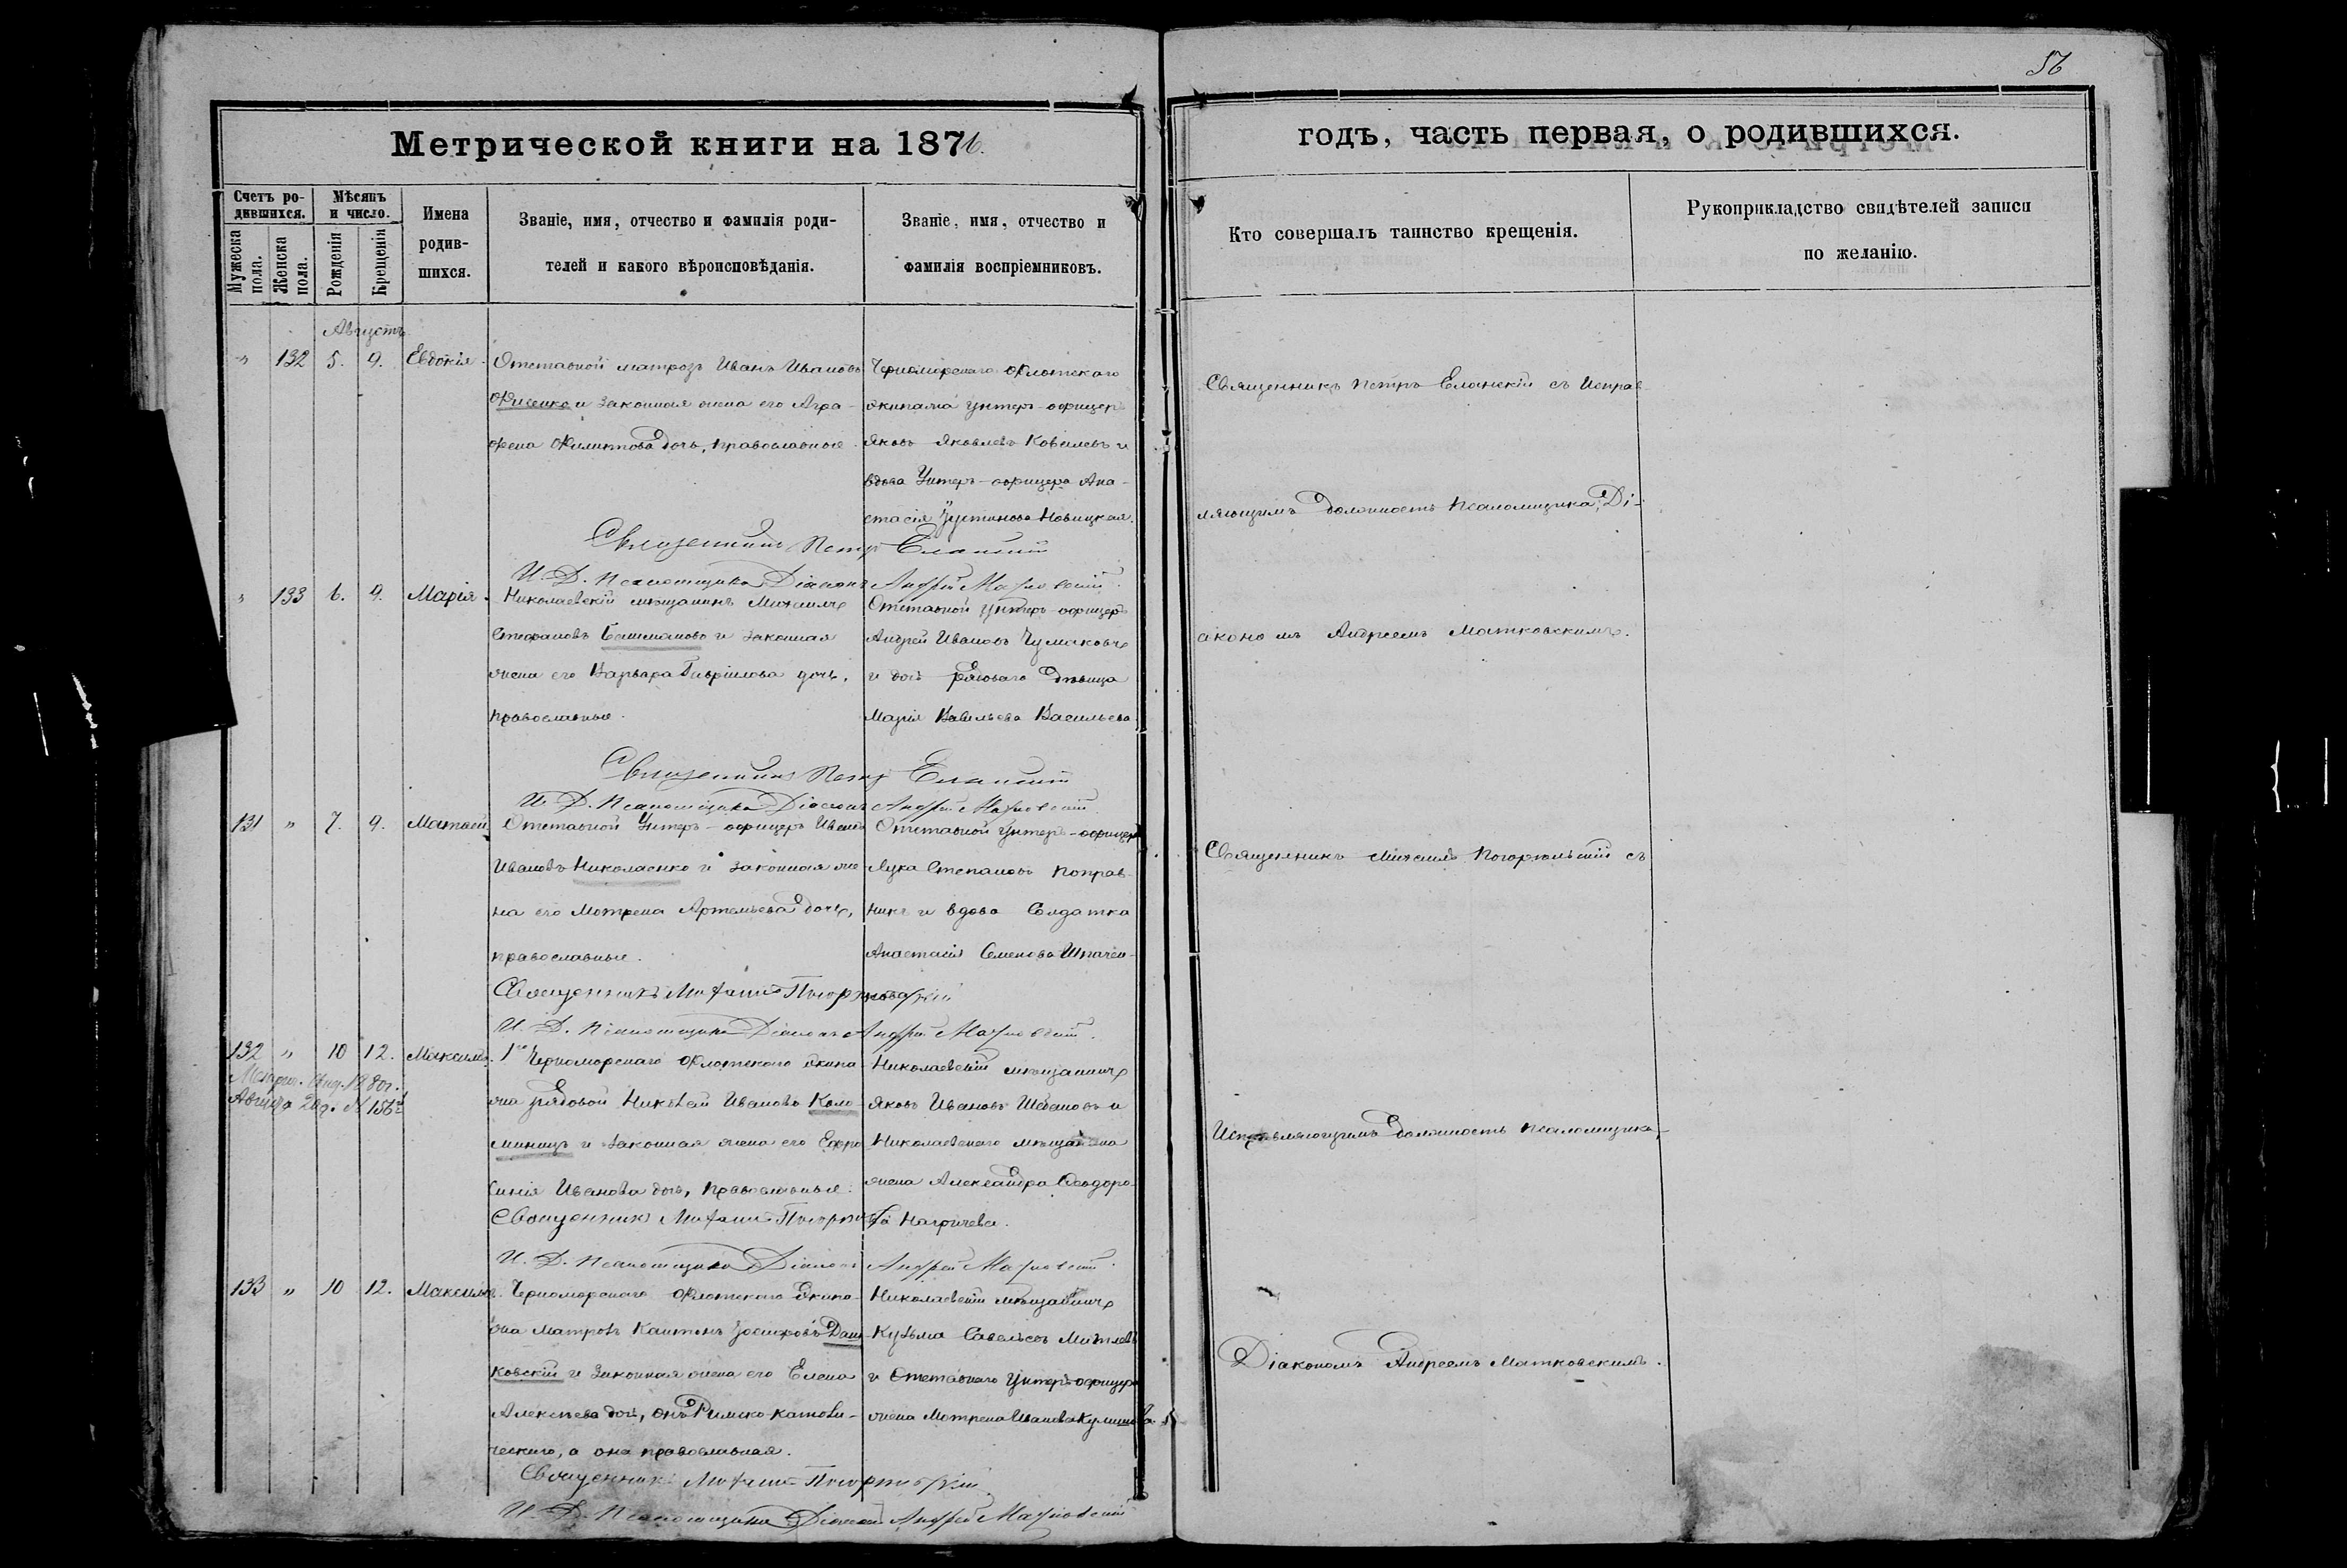 56
Метрической книги на 1876.
годъ, часть первая, о родившихся.
Счетъ ро-
дившихся.
Мужеска пола.
Женска пола.
Мѣсяцъ
и число.
Рожденія
Крещенія
Имена
родив-
шихся.
Званіе, имя, отчество и фамилія роди-
телей и какого вѣроисповѣданія.
Званіе, имя, отчество и
фамилія воспріемниковъ.
Кто совершалъ таинство крещенія.
Рукоприкладство свидѣтелей записи
по желанію.
Августъ
" 132 5. 9. Евдокія.
Отставной матрозъ Иванъ Ивановъ
и законная жена его Агра-
фена дочь, православные.
Черноморскаго Флотскаго
экипажа унтеръ-офицеръ
Яковъ Яковлевъ Ковалевъ и
вдова Унтеръ-офицера Ана-
стасія Устинова Новицкая.
Священникъ Петръ Еланскій
И. Д. Псаломщика Діаконъ Андрей Матковскій.
Священникъ Петръ Еланскій съ Исправ-
ляющимъ должность Псаломщика, Ді-
акономъ Андреемъ Матковскимъ.
" 133 6. 9. Марія.
Николаевскій мѣщанинъ Михаилъ
Стефановъ и законная
жена его Варвара Гавріилова дочь,
православные.
Отставной унтеръ-офицеръ
Андрей Ивановъ Чумаковъ
и дочь рядоваго дѣвица
Марія Васильева Васильева.
Священникъ Петръ Еланскій
И. Д. Псаломщика Діаконъ Андрей Матковскій
131 " 7. 9. Матѳей
Отставной Унтеръ-офицеръ Иванъ
Ивановъ Николаенко и законная же-
на его Мотрена Артемьева дочь,
православные.
Отставной унтеръ-офицеръ
Лука Степановъ Поправ-
никъ и вдова Солдатка
Анастасія Семенова
Священникъ Михаилъ Погорѣльскій
И. Д. Псаломщика Діаконъ Андрей Матковскій.
Священникъ Михаилъ Погорѣльскій съ
Исправляющимъ должность Псаломщика,
Діакономъ Андреемъ Матковскимъ.
132 " 10 12. Максимъ.
1880г.
1го Черноморскаго Флотскаго экипа-
жа рядовой Николай Ивановъ Коло-
миецъ и законная жена его Евфро-
синія Иванова дочь, Православные.
Николаевскій мѣщанинъ
Яковъ Ивановъ и
Николаевскаго мѣщанина
жена Александра Ѳеодоро-
ва
Священникъ Михаилъ
И. Д. Псаломщика Діаконъ Андрей Матковскій.
133 " 10 12. Максимъ.
Черноморскаго Флотскаго Экипа-
жа матрозъ Каитанъ Даш-
ковскій и законная жена его Елена
Алексѣева дочь, онъ Римско-католи-
ческаго, а она православная.
Николаевскій мѣщанинъ
Кузьма Савельевъ
и Отставнаго унтеръ-офицера
жена Мотрена Иванова
Священникъ Михаилъ Погорѣльскій.
И. Д. Псаломщика Діаконъ Андрей Матковскій